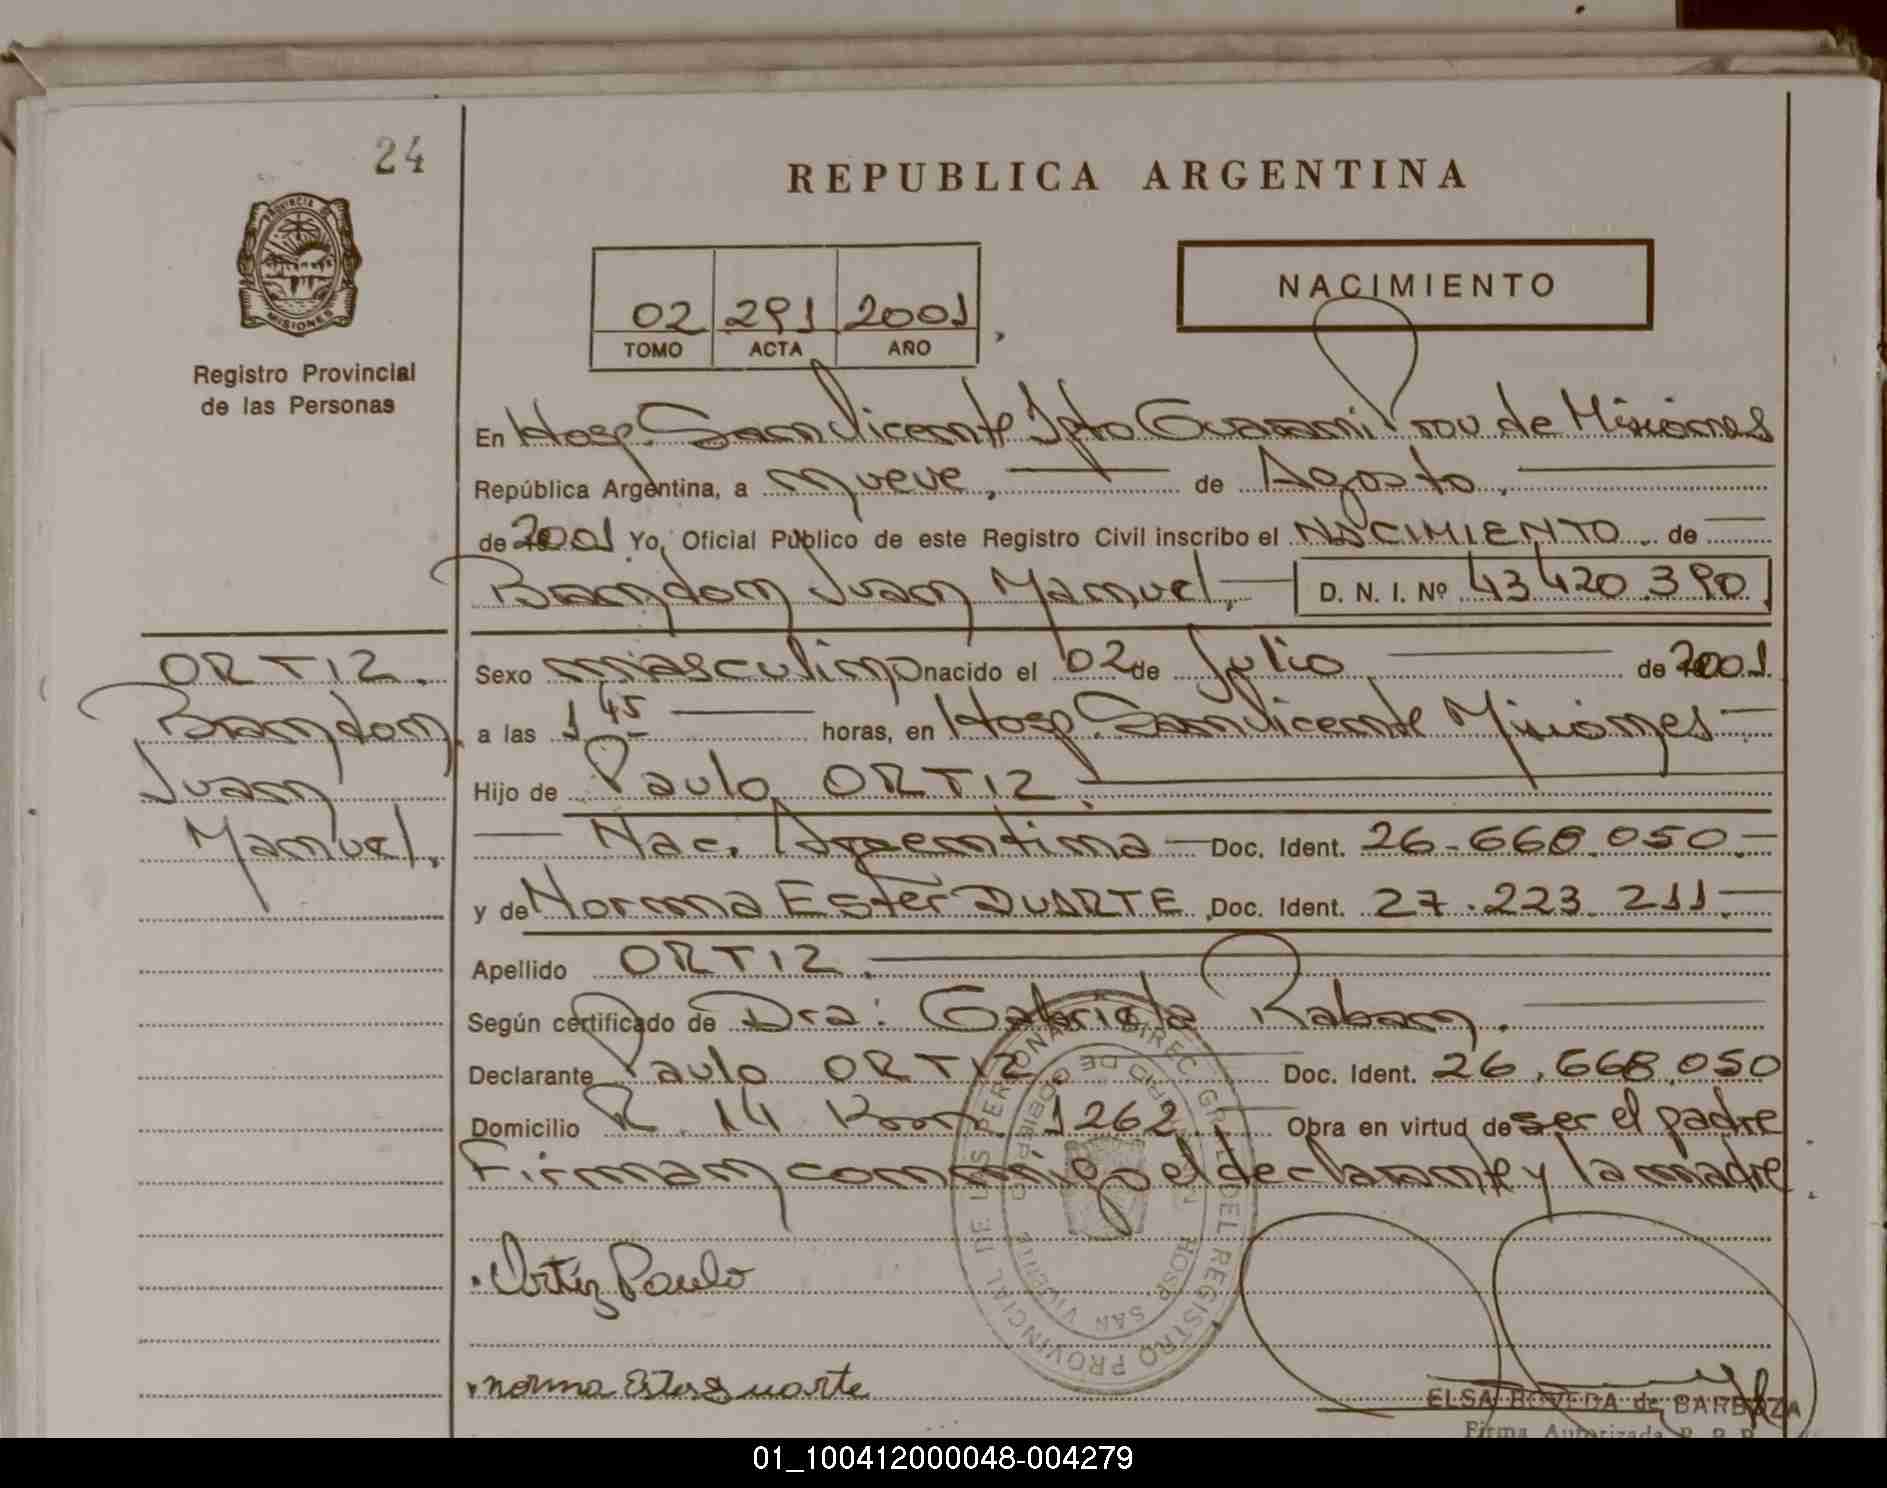 24
REPUBLICA ARGENTINA
PROVINCIA DE
MISIONES
Registro Provincial
de las Personas
NACIMIENTO
02 291 2001
TOMO ACTA AÑO
En Hosp. San Vicente Dpto Guarani Prov de Misiones
República Argentina, a nueve, de Agosto.
de 2001 Yo, Oficial Público de este Registro Civil inscribo el NACIMIENTO de
Brandon Juan Manuel, D. N. I. Nº 43 420.390
ORTIZ.
Brandon
Juan
Manuel.
Sexo masculino nacido el 02 de Julio de 2001
a las 1 45 horas, en Hosp. San Vicente Misiones
Hijo de Paulo ORTIZ.
Nac. Argentina Doc. Ident. 26.668.050
y de Norma Ester DUARTE Doc. Ident. 27.223.211
Apellido ORTIZ.
Según certificado de Dra: Gabriela Raban.
Declarante Paulo ORTIZ. Doc. Ident. 26.668.050
Domicilio R. 14 Km. 1262 Obra en virtud de ser el padre
Firman conmigo el declarante y la madre
DIREC. GRAL. DEL REGISTRO PROVINCIAL DE LAS PERSONAS
HOSP. SAN VICENTE
Ortiz Paulo
norma Ester Duarte
ELSA ROVEDA de BARBOZA
Firma Autorizada R. P. P.
01_100412000048-004279